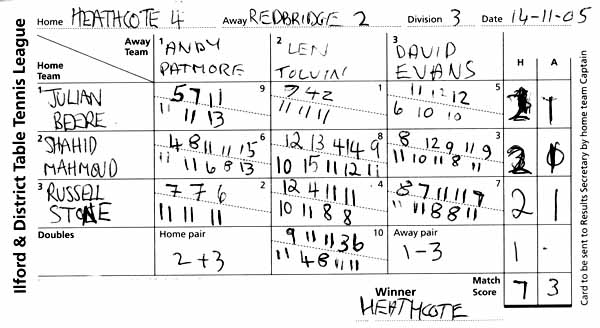 Ilford & District Table Tennis League
Home HEATHCOTE 4 Away REDBRIDGE 2 Division 3 Date 14-11-05
Away Team
Home Team
1 ANDY PATMORE
2 LEN
3 DAVID EVANS
H A
1 JULIAN BEERE
5 7 11 9
11 11 13
3 4 2 1
11 11 11
11 12 12 5
6 10 10
1
2 SHAHID MAHMOUD
4 8 11 11 15 6
11 11 6 8 13
12 13 4 14 9 8
10 15 11 12 11
8 12 9 11 9 3
11 10 11 8 11
3 RUSSELL STONE
7 7 6 2
11 11 11
12 4 11 11 4
10 11 8 8
8 7 11 11 7
11 11 8 8 11
2 1
Doubles
Home pair
2+3
9 11 11 3 6 10
11 4 8 11 11
Away pair
1-3
1 -
Winner
HEATHCOTE
Match Score
7 3
Card to be sent to Results Secretary by home team Captain